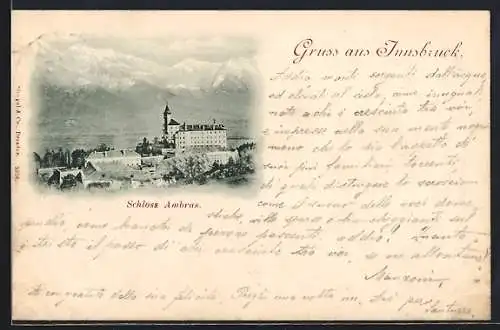 Gruss aus Innsbruck.
Addio monti sorgenti dall'acque
ed elevati al cielo, cime inuguali
note a chi è cresciuto tra voi,
e impresse nella sua mente non
meno che lo sia l'aspetto de'
suoi più familiari torrenti
di quali distingue lo scroscio
come il suono delle voci dome
stiche, ville sparse e biancheggianti sul
pendio, come branchi di pecore pascenti addio! Quanto
è triste il passo di chi cresciuto tra voi, se ne allontana!
Manzoni
Schloss Ambras.
Stengel & Co., Dresden
della sua felicità.